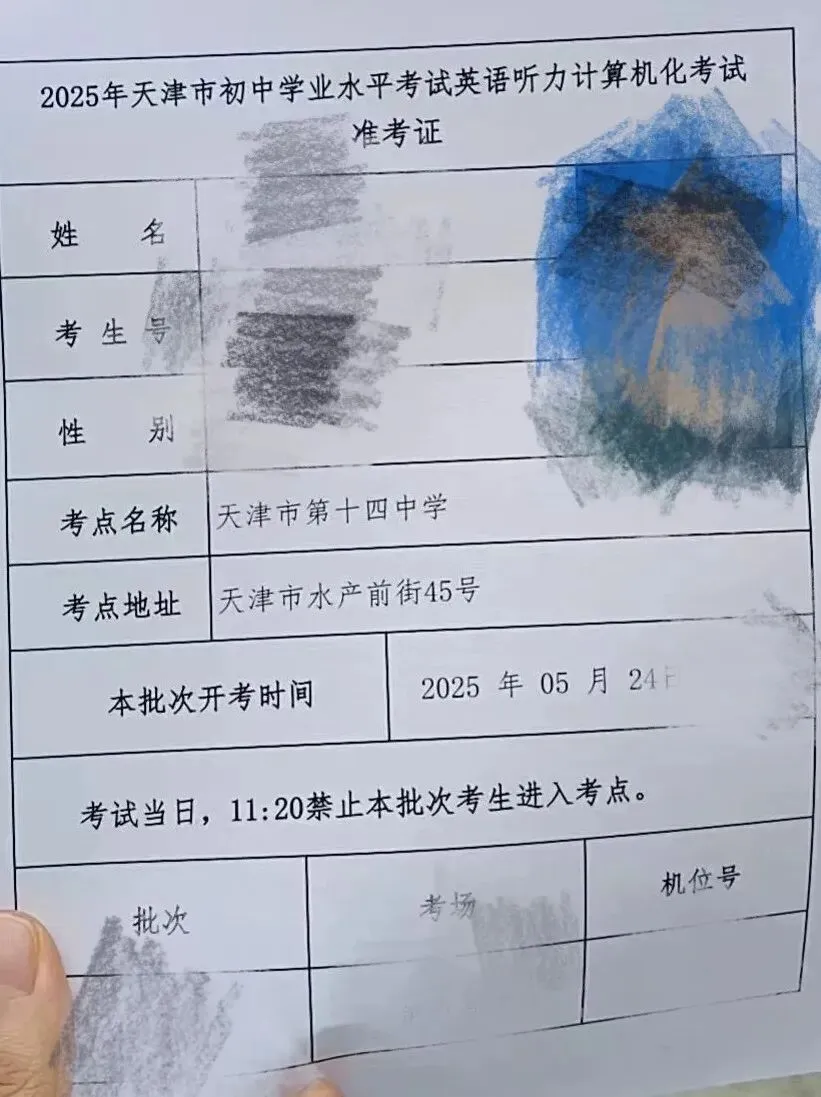 2025年天津市初中学业水平考试英语听力计算机化考试
准考证
姓 名
考 生 号
性 别
考点名称 天津市第十四中学
考点地址 天津市水产前街45号
本批次开考时间 2025 年 05 月 24日
考试当日，11:20禁止本批次考生进入考点。
批次 考场 机位号